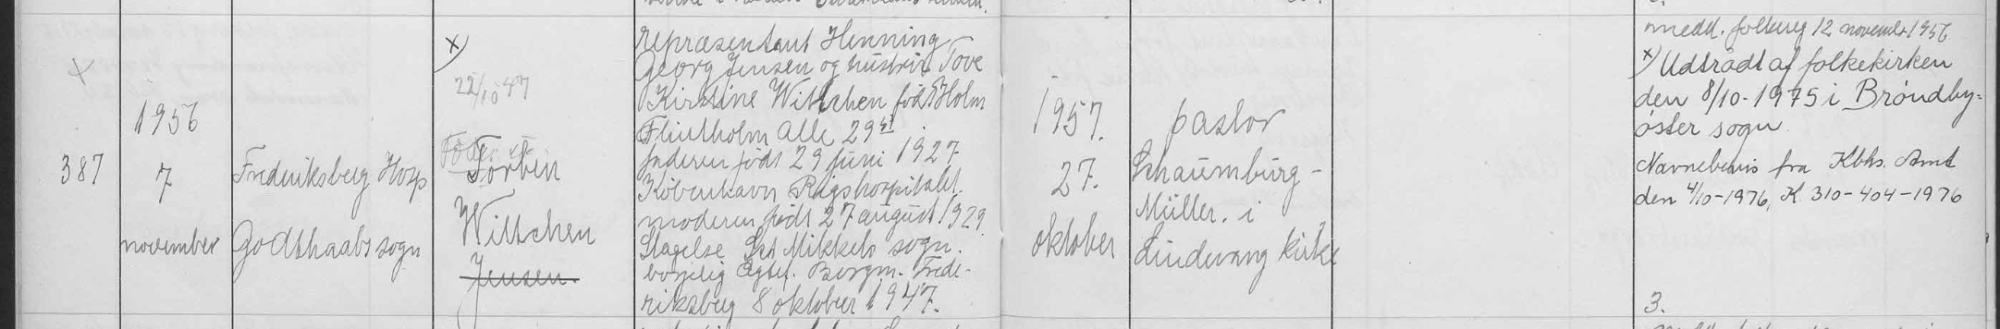 x
387
1956
7
november
Frederiksberg Hosp
Godthaabs sogn
x)
22/10 47
Torben
Wittchen
Jensen
repræsentant Henning
Georg Jensen og hustru Tove
Kirstine Wittchen født Holm
Flintholm Alle 29
faderen født 29 juni 1927
København Rigshospitalet.
moderen født 27 august 1929.
Slagelse Sct Mikkels sogn.
borgelig Borgm. Frede-
riksberg 8 oktober 1947.
1957.
27.
oktober
pastor
Schaumburg-
Müller. i
Lindevang kirke
medd. folkereg 12 november 1956
x) Udtrådt af folkekirken
den 8/10-1975 i Brøndby-
øster sogn
Navnebevis fra Kbhs. Amt
den 4/10-1976, K 310-404-1976
3.